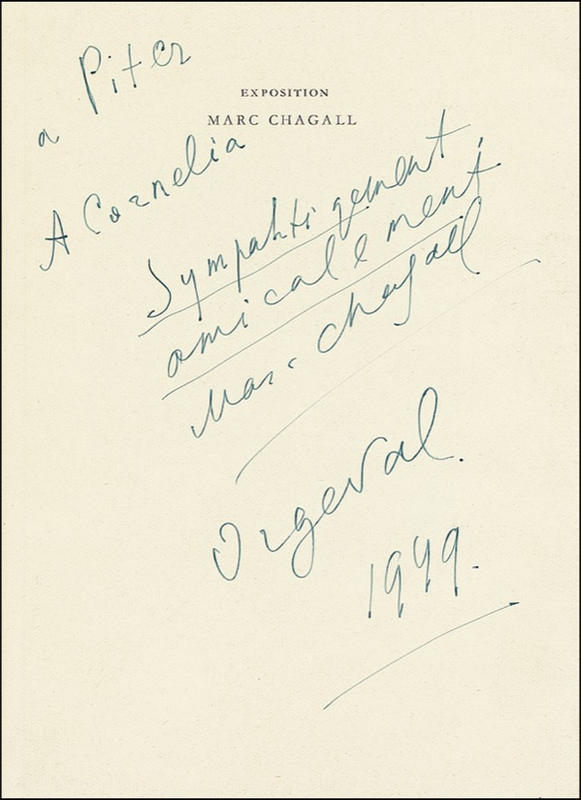 a Piter
EXPOSITION
MARC CHAGALL
A Cornelia
Sympahtiquement,
amicalement
Marc Chagall
Orgeval.
1949.